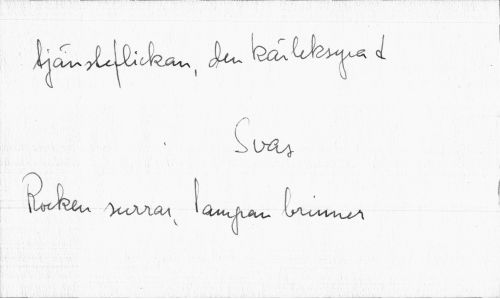 tjänsteflickan, den kärleksyra d
Svas
Rocken surrar, lampan brinner